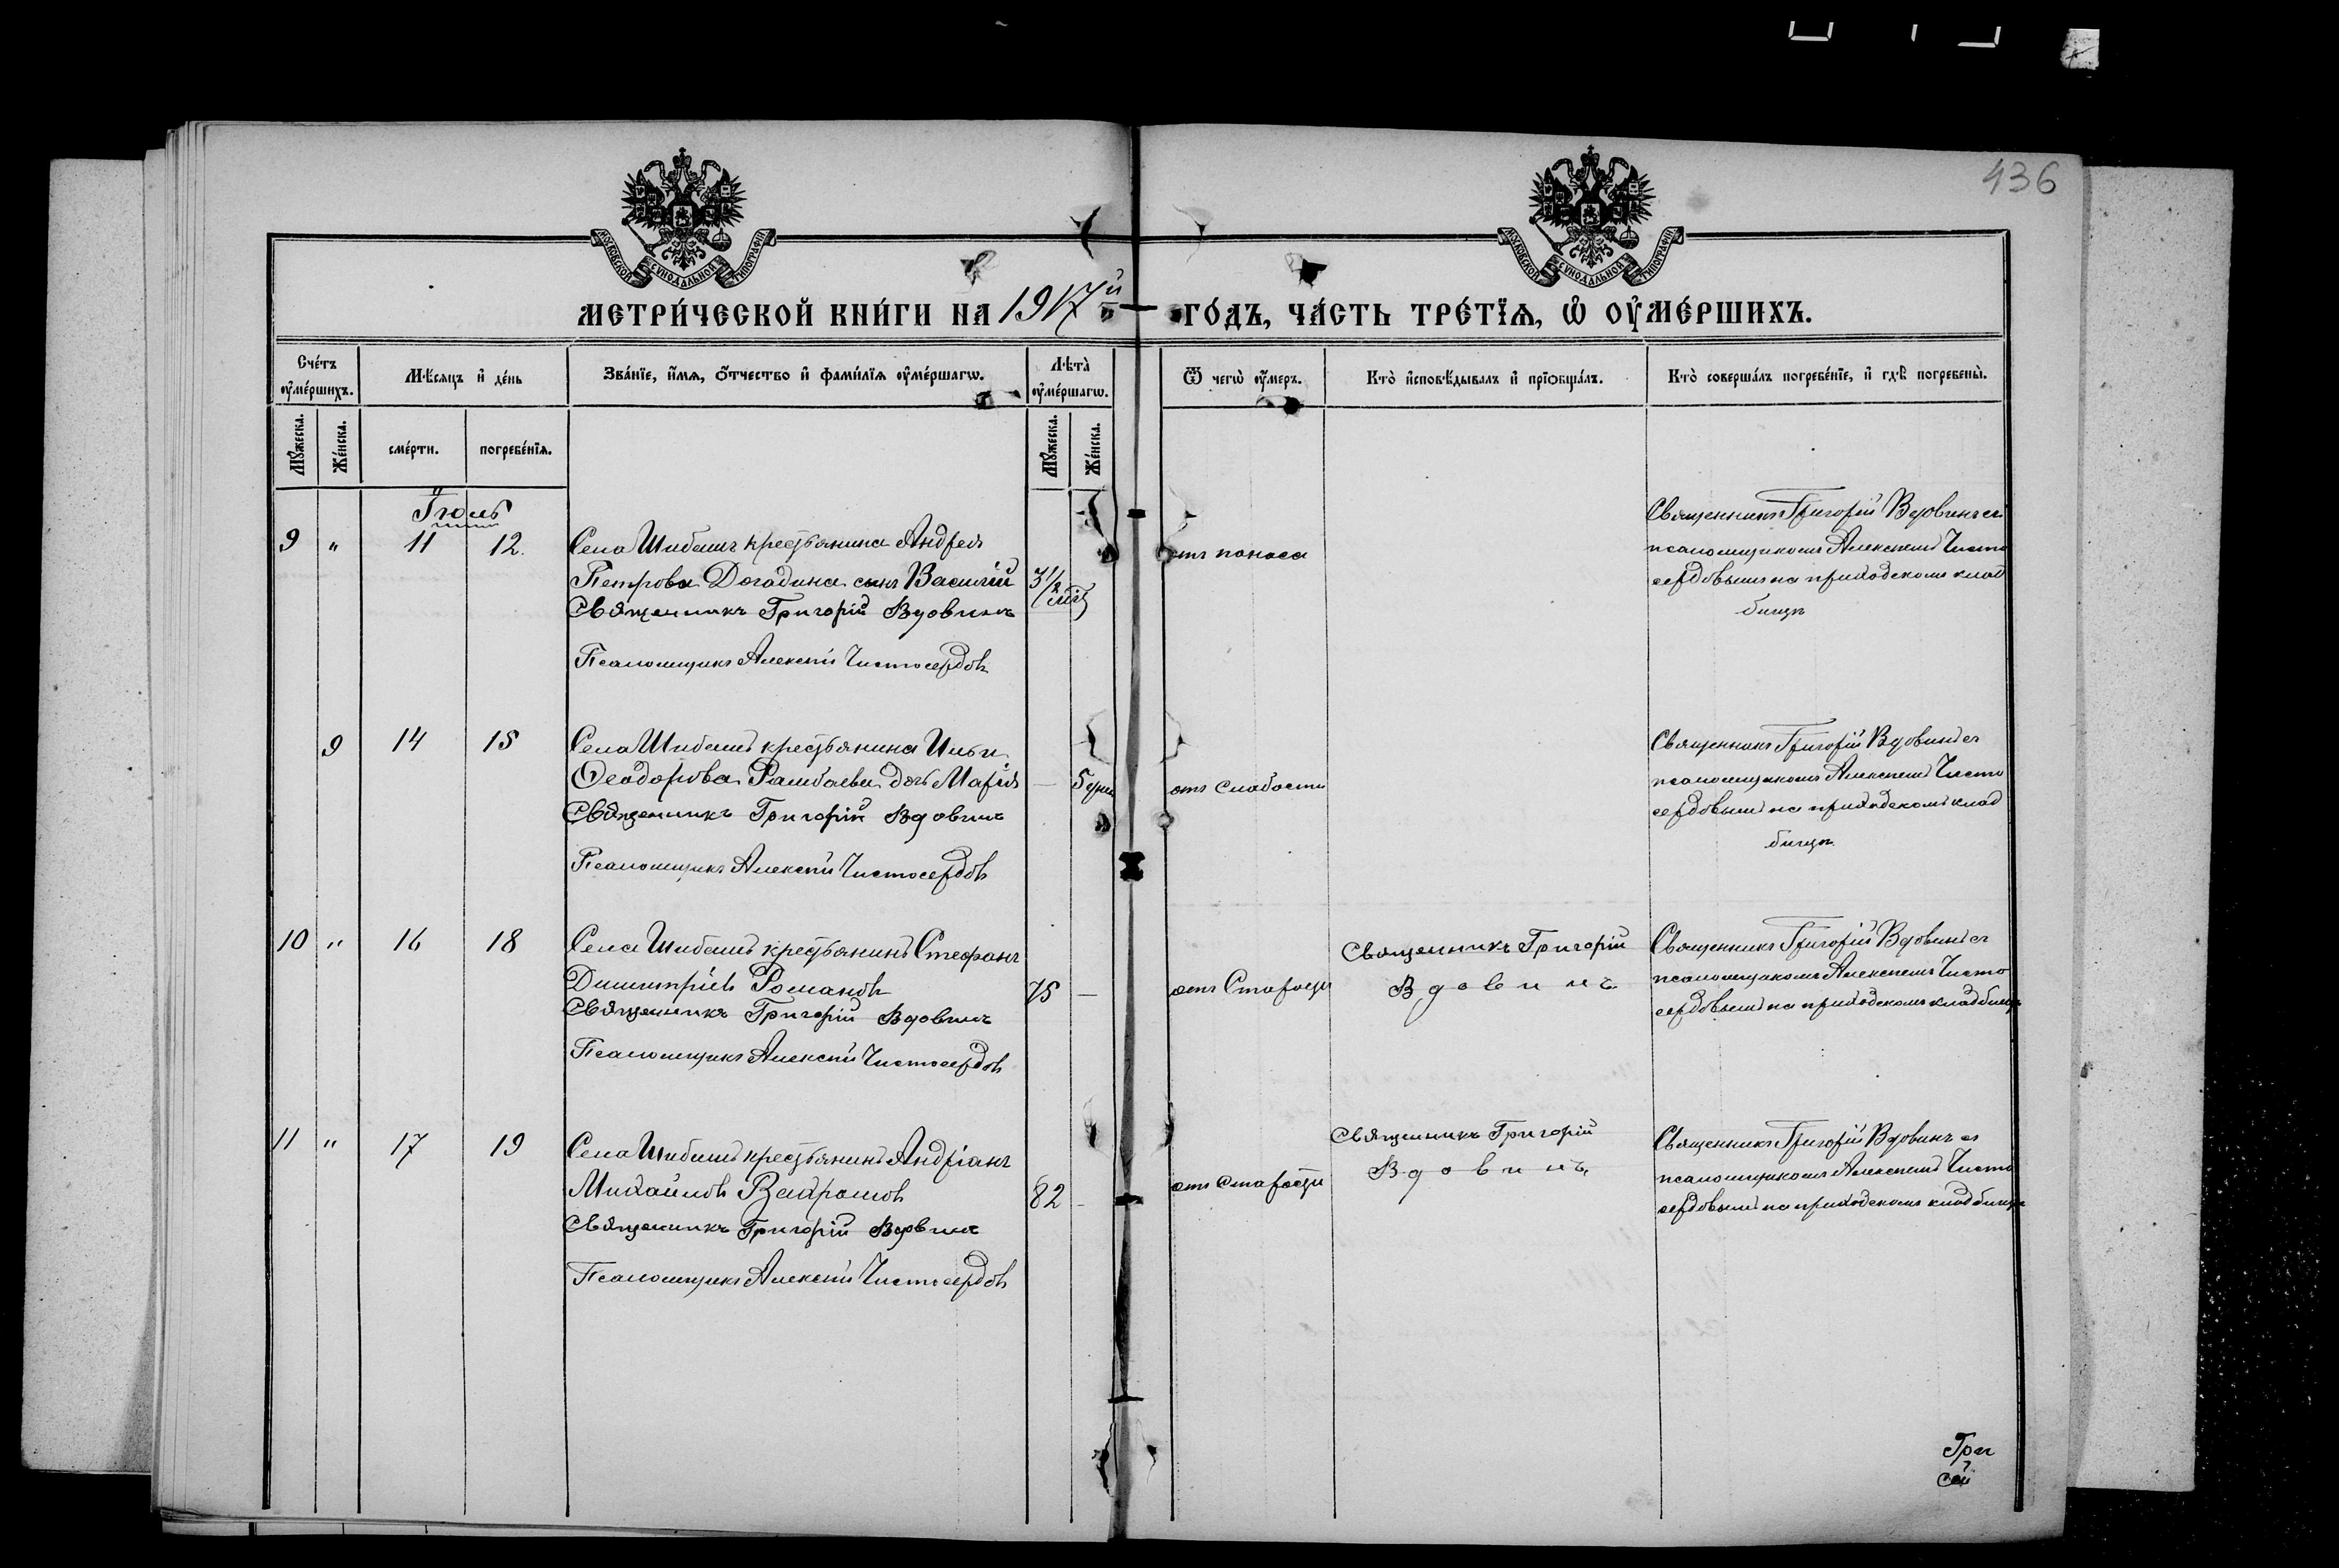 436
МОСКОВСКОЙ СѴНОДАЛЬНОЙ ТИПОГРАФІИ
МОСКОВСКОЙ СѴНОДАЛЬНОЙ ТИПОГРАФІИ
МЕТРИ́ЧЕСКОЙ КНИ́ГИ НА 1917й ГО́ДЪ, ЧА́СТЬ ТРЕ́ТІѦ, Ѡ҆ ОУ҆МЕ́РШИХЪ.
Сче́тъ оу҆ме́ршихъ.
Мѣ́сяцъ и҆ де́нь
Зва́нїе, и҆́мѧ, ѻ҆́тчество и҆ фами́лїѧ оу҆ме́ршагѡ.
Лѣта̀ оу҆ме́ршагѡ.
Ѿ чегѡ̀ оу҆́меръ.
Кто̀ и҆сповѣ́дывалъ и҆ прїѡбща́лъ.
Кто̀ соверша́лъ погребе́нїе, и҆ гдѣ̀ погребены̀.
Мꙋ́жеска.
Же́нска.
сме́рти.
погребе́нїѧ.
Мꙋ́жеска.
Же́нска.
Іюль
9 " 11 12.
Села Шибашъ крестьянина Андрея
Петрова Догадина сынъ Василій
3 1/2 мѣс
Священникъ Григорій Вдовинъ
Псаломщикъ Алексѣй Чистосердовъ
отъ поноса
Священникъ Григорій Вдовинъ съ
псаломщикомъ Алексѣемъ Чисто
сердовымъ на приходскомъ клад
бищѣ
9 14 15
Села Шибашъ крестьянина Ильи
Ѳеодорова Рамбаева дочь Марія
— 5 дни
Священникъ Григорій Вдовинъ
Псаломщикъ Алексѣй Чистосердовъ
отъ слабости
Священникъ Григорій Вдовинъ съ
псаломщикомъ Алексѣемъ Чисто
сердовымъ на приходскомъ клад
бищѣ
10 " 16 18
Села Шибашъ крестьянинъ Стефанъ
Димитріевъ Романовъ
75 —
Священникъ Григорій Вдовинъ
Псаломщикъ Алексѣй Чистосердовъ
отъ Старости
Священникъ Григорій
Вдовинъ
Священникъ Григорій Вдовинъ съ
псаломщикомъ Алексѣемъ Чисто
сердовымъ на приходскомъ кладбищѣ
11 " 17 19
Села Шибашъ крестьянинъ Андріанъ
Михайловъ Вахромовъ
82 -
Священникъ Григорій Вдовинъ
Псаломщикъ Алексѣй Чистосердовъ
отъ Старости
Священникъ Григорій
Вдовинъ
Священникъ Григорій Вдовинъ съ
псаломщикомъ Алексѣемъ Чисто
сердовымъ на приходскомъ кладбищѣ
Гри
сей